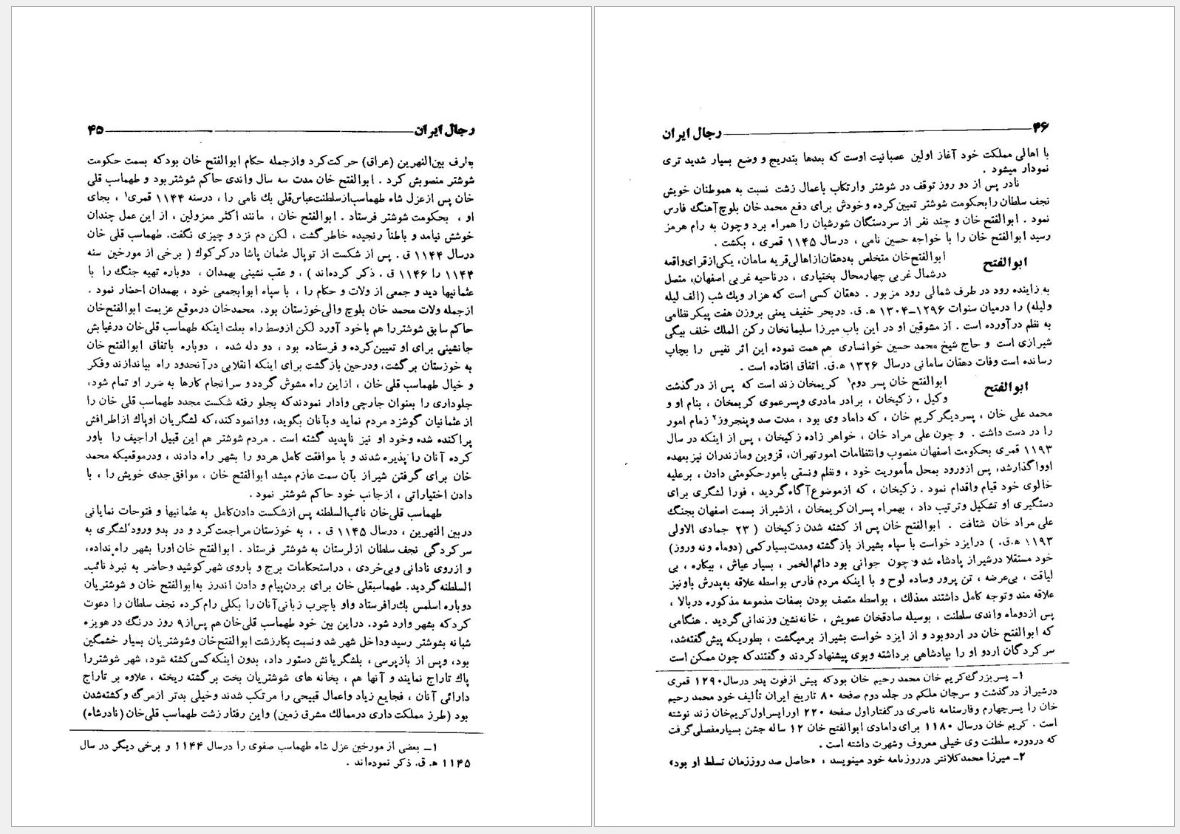 رجال ایران ۴۵
بطرف بین‌النهرین (عراق) حرکت‌کرد وازجمله حکام ابوالفتح خان بود که بسمت حکومت
شوشتر منصوبش کرد . ابوالفتح خان مدت سه سال واندی حاکم شوشتر بود و طهماسب قلی
خان پس از عزل شاه طهماسب ازسلطنت عباس‌قلی بك نامی را ، درسنه ۱۱۴۴ قمری۱ ، بجای
او ، بحکومت شوشتر فرستاد . ابوالفتح خان ، مانند اکثر معزولین ، از این عمل چندان
خوشش نیامد و باطناً رنجیده خاطر گشت ، لکن دم نزد و چیزی نگفت. طهماسب قلی خان
درسال ۱۱۴۴ ق . پس از شکست از توپال عثمان پاشا درکرکوك ( برخی از مورخین سنه
۱۱۴۴ را ۱۱۴۶ ق . ذکر کرده‌اند ) ، و عقب نشینی بهمدان ، دوباره تهیه جنگ را با
عثمانیها دید و جمعی از ولات و حکام را ، با سپاه ابوابجمعی خود ، بهمدان احضار نمود .
ازجمله ولات محمد خان بلوچ والی خوزستان بود. محمدخان درموقع عزیمت ابوالفتح‌خان
حاکم سابق شوشتر را هم باخود آورد لکن ازوسط راه بعلت اینکه طهماسب قلی‌خان درغیابش
جانشینی برای او تعیین‌کرده و فرستاده بود ، دو دله شده ، دوباره باتفاق ابوالفتح خان
به خوزستان برگشت، ودرحین بازگشت برای اینکه انقلابی درآنحدود راه بیاندازند وفکر
و خیال طهماسب قلی خان ، ازاین راه مشوش گردد و سرانجام کارها به ضرر او تمام شود،
جلوداری را بعنوان جارچی وادار نمودند که بجلو رفته شکست مجدد طهماسب قلی خان را
از عثمانیان گوشزد مردم نماید وبآنان بگوید، ووانمودکند، که لشگریان اوپاك ازاطرافش
پراکنده شده وخود او نیز ناپدید گشته است . مردم شوشتر هم این قبیل اراجیف را باور
کرده آنان را پذیره شدند و با موافقت کامل هردو را بشهر راه دادند ، ودرموقعیکه محمد
خان برای گرفتن شیراز بآن سمت عازم میشد ابوالفتح خان ، موافق جدی خویش را ، با
دادن اختیاراتی ، ازجانب خود حاکم شوشتر نمود .
طهماسب قلی‌خان نائب‌السلطنه پس ازشکست دادن‌کامل به عثمانیها و فتوحات نمایانی
دربین النهرین ، درسال ۱۱۴۵ ق . ، به خوزستان مراجعت‌کرد و در بدو ورود لشگری به
سرکردگی نجف سلطان ازلرستان به شوشتر فرستاد . ابوالفتح خان اورا بشهر راه نداده،
و ازروی نادانی وبی‌خردی ، دراستحکامات برج و باروی شهر کوشید وحاضر به نبرد نائب‌ـ
السلطنه گردید. طهماسبقلی خان برای بردن‌پیام و دادن اندرز به‌ابوالفتح خان و شوشتریان
دوباره اسلمس بك‌را فرستاد واو باچرب زبانی آنان را بکلی رام‌کرده نجف سلطان را دعوت
کرد که بشهر وارد شود. دراین بین خود طهماسب قلی‌خان هم پس‌از۹ روز درنگ در هویزه
شبانه بشوشتر رسید وداخل شهر شد ونسبت بکارزشت ابوالفتح‌خان وشوشتریان بسیار خشمگین
بود، وپس از بازپرسی ، بلشگریانش دستور داد، بدون اینکه‌کسی‌کشته شود، شهر شوشتررا
پاك تاراج نمایند و آنها هم ، بخانه های شوشتریان بخت برگشته ریخته ، علاوه بر تاراج
دارائی آنان ، فجایع زیاد واعمال قبیحی را مرتکب شدند وخیلی بدتر ازمرگ وکشته‌شدن
بود (طرز مملکت داری درممالك مشرق زمین) واین رفتار زشت طهماسب قلی‌خان (نادرشاه)
۱ـ بعضی از مورخین عزل شاه طهماسب صفوی را درسال ۱۱۴۴ و برخی دیگر در سال
۱۱۴۵ ه.ق. ذکر نموده‌اند .
رجال ایران ۴۶
با اهالی مملکت خود آغاز اولین عصبانیت اوست که بعدها بتدریج و وضع بسیار شدید تری
نمودار میشود .
نادر پس از دو روز توقف در شوشتر وارتکاب باعمال زشت نسبت به هموطنان خویش
نجف سلطان رابحکومت شوشتر تعیین‌کرده وخودش برای دفع محمدخان بلوچ آهنگ فارس
نمود . ابوالفتح خان و چند نفر از سردستگان شورشیان را همراه برد وچون به رام هرمز
رسید ابوالفتح خان را با خواجه حسین نامی ، درسال ۱۱۴۵ قمری ، بکشت .
ابوالفتح ابوالفتح‌خان متخلص به‌دهقان‌ازاهالی‌قریه سامان، یکی‌ازقرای‌واقعه
درشمال غربی چهارمحال بختیاری ، درناحیه غربی اصفهان، متصل
به زاینده رود در طرف شمالی رود مزبور . دهقان کسی است که هزار ویك شب (الف لیله
ولیله) را درمیان سنوات ۱۲۹۶-۱۳۰۴ ه.ق. دربحر خفیف یعنی بروزن هفت پیکر نظامی
به نظم درآورده است . از مشوقین او در این باب میرزا سلیمانخان رکن الملك خلف بیگی
شیرازی است و حاج شیخ محمد حسین خوانساری هم همت نموده این اثر نفیس را بچاپ
رسانده است وفات دهقان سامانی درسال ۱۳۲۶ ه.ق. اتفاق افتاده است .
ابوالفتح ابوالفتح خان پسر دوم۱ کریمخان زند است که پس از درگذشت
وکیل ، زکیخان ، برادر مادری وپسرعموی کریمخان ، بنام او و
محمد علی خان ، پسردیگر کریم خان ، که داماد وی بود ، مدت صد وپنجروز۲ زمام امور
را در دست داشت . و چون علی مراد خان ، خواهر زاده زکیخان ، پس از اینکه در سال
۱۱۹۳ قمری بحکومت اصفهان منصوب وانتظامات امورتهران، قزوین ومازندران نیز بعهده
اوواگذارشد، پس ازورود بمحل مأموریت خود ، ونظم ونسقی بامورحکومتی دادن ، برعلیه
خالوی خود قیام واقدام نمود . زکیخان ، که ازموضوع آگاه گردید ، فورا لشگری برای
دستگیری او تشکیل وترتیب داد ، بهمراه پسران‌کریمخان ، ازشیراز بسمت اصفهان بجنگ
علی مراد خان شتافت . ابوالفتح خان پس از کشته شدن زکیخان ( ۲۳ جمادی الاولی
۱۱۹۳ ه.ق. ) درایزد خواست با سپاه بشیراز بازگشته ومدت‌بسیارکمی (دوماه ونه روز)
خود مستقلا درشیراز پادشاه شد و چون جوانی بود دائم‌الخمر ، بسیار عیاش ، بیکاره ، بی
لیاقت ، بی‌عرضه ، تن پرور وساده لوح و با اینکه مردم فارس بواسطه علاقه به‌پدرش باونیز
علاقه مند وتوجه کامل داشتند معذلك ، بواسطه متصف بودن بصفات مذمومه مذکوره دربالا ،
پس ازدوماه واندی سلطنت ، بوسیله صادقخان عمویش ، خانه‌نشین وزندانی گردید . هنگامی
که ابوالفتح خان در اردوبود و از ایزد خواست بشیراز برمیگشت ، بطوریکه پیش گفته‌شد،
سرکردگان اردو او را بپادشاهی برداشته وبوی پیشنهادکردند وگفتندکه چون ممکن است
۱ـ پسربزرگ‌کریم خان محمد رحیم خان بودکه پیش ازفوت پدر درسال۱۲۹۰ قمری
درشیراز درگذشت و سرجان ملکم در جلد دوم صفحه ۸۰ تاریخ ایران تألیف خود محمد رحیم
خان را پسرچهارم وفارسنامه ناصری درگفتاراول صفحه ۲۲۰ اوراپسراول‌کریم‌خان زند نوشته
است . کریم خان درسال ۱۱۸۰ برای‌دامادی ابوالفتح خان ۱۲ ساله جشن بسیارمفصلی‌گرفت
که دردوره سلطنت وی خیلی معروف وشهرت داشته است .
۲ـ میرزا محمدکلانتر درروزنامه خود مینویسد ، «حاصل صد روززمان تسلط او بود»